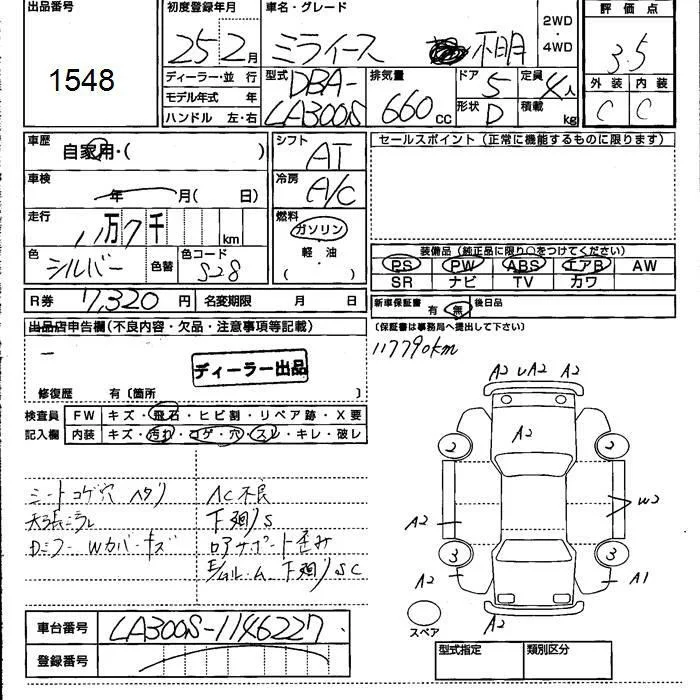 出品番号
1548
初度登録年月
25 2月
車名・グレード
ミライース 不明
2WD・4WD
評価点
3.5
外装 内装
C C
ディーラー・並行
モデル年式 年
ハンドル 左・右
型式
DBA-
LA300S
排気量
660cc
ドア 5
形状 D
定員 4人
積載 kg
車歴
自家用・( )
車検
年 月( 日)
走行
11万7千 km
色
シルバー
色替
色コード
S28
シフト
AT
冷房
A/C
燃料
ガソリン
軽・油
( )
セールスポイント(正常に機能するものに限ります)
装備品(純正品に限り○をつけてください)
PS PW ABS エアB AW
SR ナビ TV カワ
R券 7,320円 名変期限 月 日
新車保証書 有 無 後日品
(保証書は事務局へ提出して下さい)
出品店申告欄(不良内容・欠品・注意事項等記載)
ー
ディーラー出品
修復歴 有〔箇所 〕
117790km
検査員 FW キズ・飛石・ヒビ割・リペア跡・X要
記入欄 内装 キズ・汚れ・コゲ・穴・スレ・キレ・破レ
シートコゲ穴 ヘタリ
AC不良
下廻りS
下廻りSC
A2 U A2 A2
A2
2 2
A2
W2
3 3
A2
A1
A2
スペア
車台番号 LA300S-1146227
登録番号
型式指定 類別区分